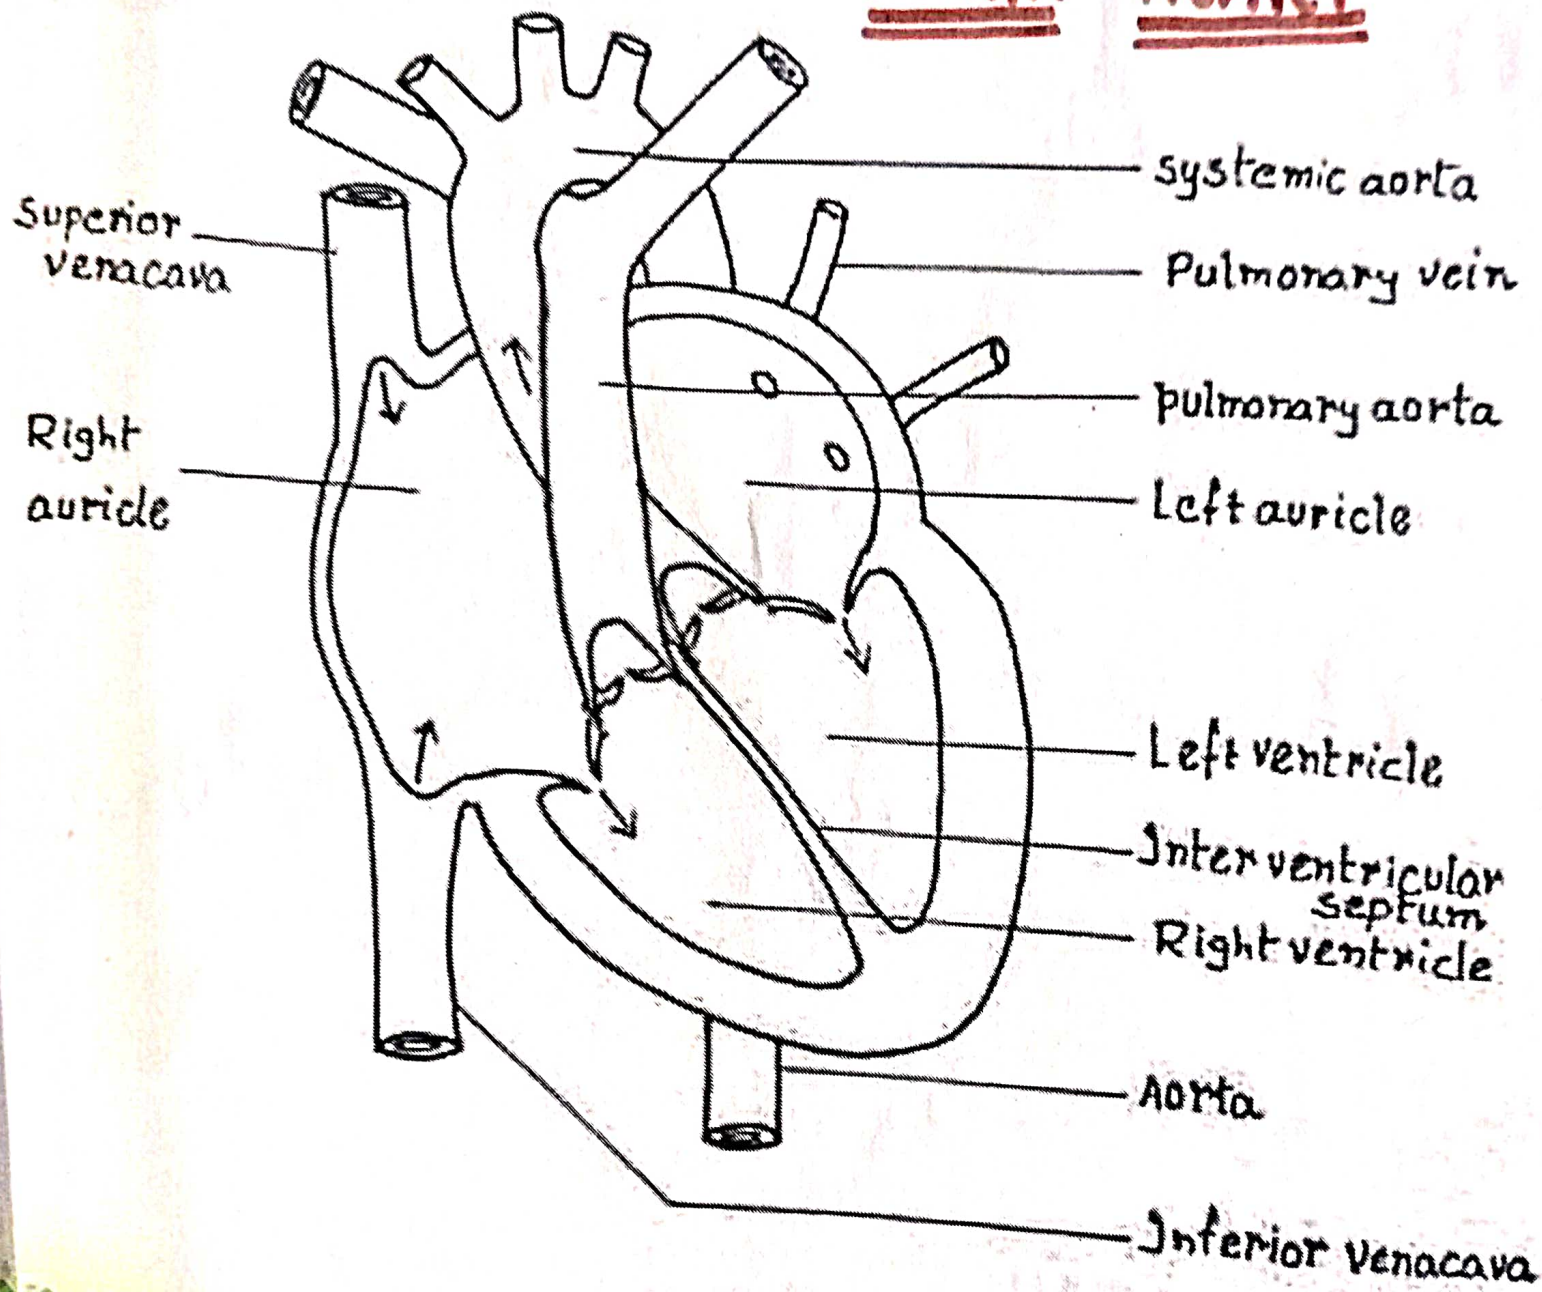 HEART
Superior
venacava
Right
auricle
systemic aorta
Pulmonary vein
pulmonary aorta
Left auricle
Left ventricle
Inter ventricular
septum
Right ventricle
Aorta
Inferior venacava